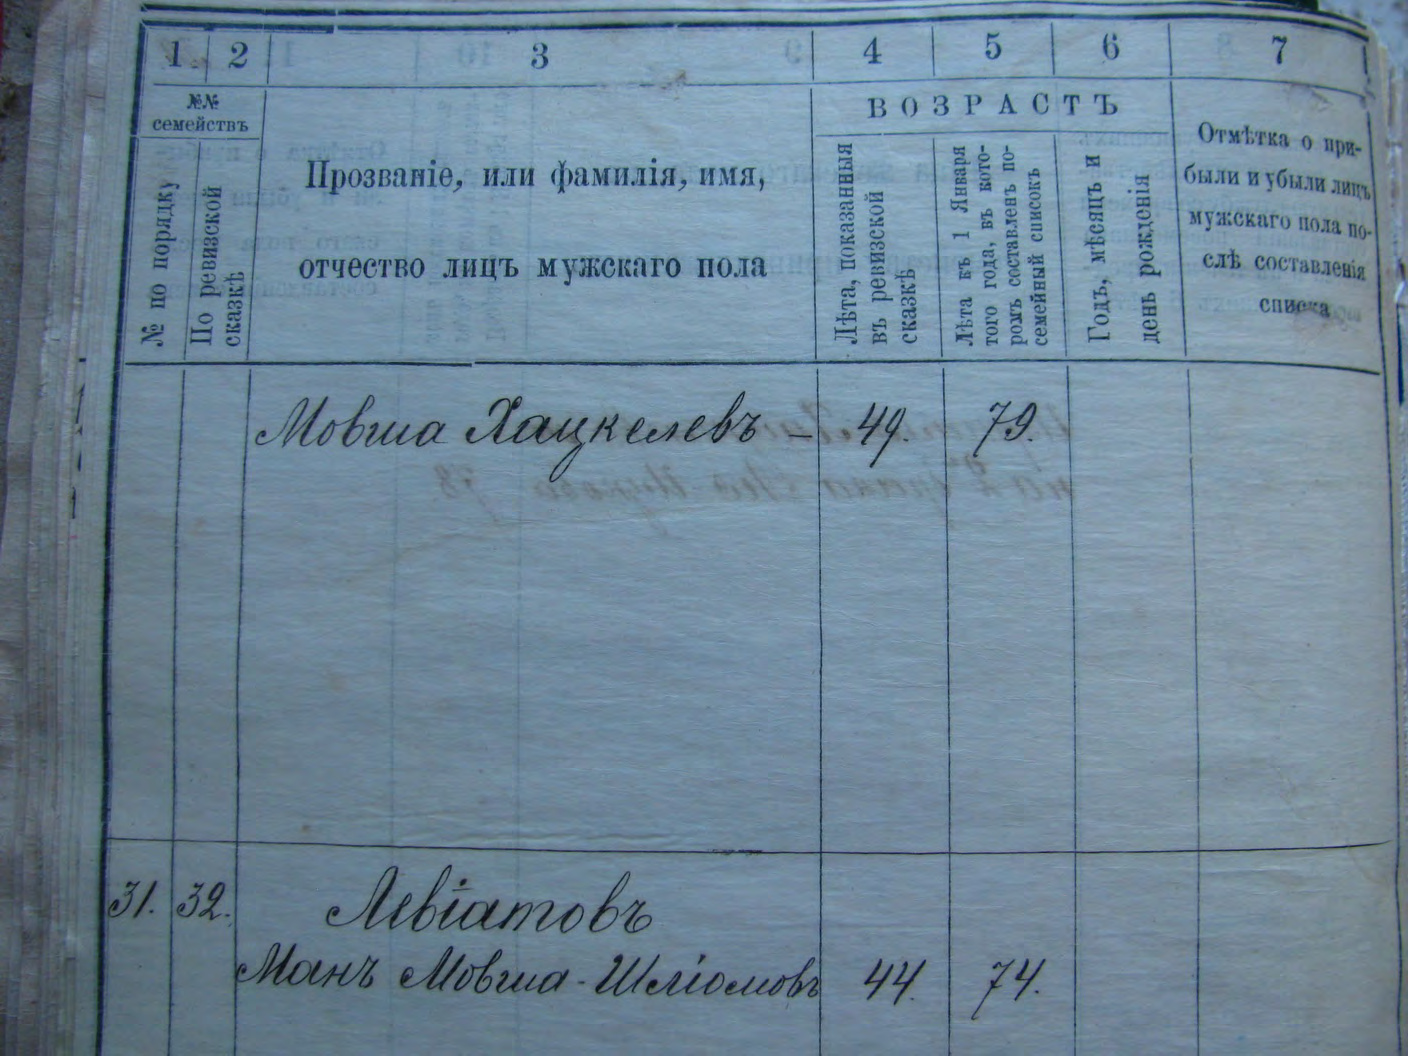 1 2 3 4 5 6 7
№№
семействъ
№ по порядку
По ревизской
сказкѣ
Прозваніе, или фамилія, имя,
отчество лицъ мужскаго пола
ВОЗРАСТЪ
Лѣта, показанныя
въ ревизской
сказкѣ
Лѣта къ 1 Января
того года, въ кото-
ромъ составленъ по-
семейный списокъ
Годъ, мѣсяцъ и
день рожденія
Отмѣтка о при-
были и убыли лицъ
мужскаго пола по-
слѣ составленія
списка
Мовша Хацкелевъ – 49. 79.
31. 32. Левіатовъ
Манъ Мовша-Шліомовъ 44. 74.